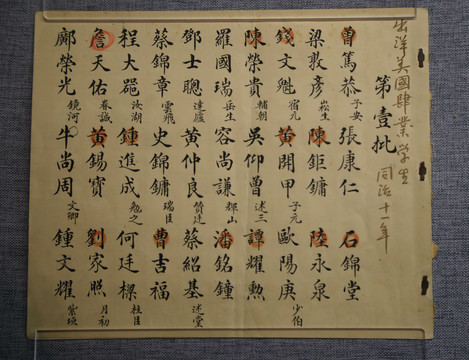 出洋美國肄業學生
同治十一年
第壹批
曾篤恭 子安 張康仁 石錦堂
梁敦彥 崧生 陳鉅鏞 陸永泉
錢文魁 宿九 黃開甲 子元 歐陽庚 少伯
陳榮貴 輔朝 吳仰曾 述三 譚耀勳
羅國瑞 岳生 容尚謙 輝山 潘銘鐘
鄧士聰 達廣 黃仲良 贊廷 蔡紹基 述堂
蔡錦章 雲飛 史錦鏞 瑞臣 曹吉福
程大器 汝湖 鍾進成 勉之 何廷樑 柱臣
詹天佑 眷誠 黃錫寶 劉家照 月初
鄺榮光 鏡河 牛尚周 文卿 鍾文耀 紫垣